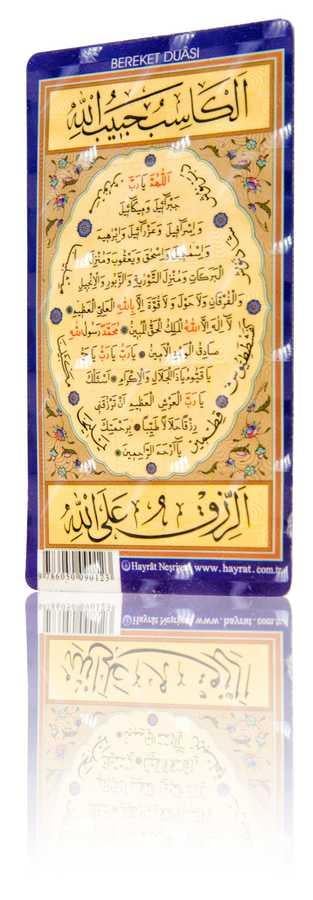 BEREKET DUÂSI
الكاسب حبيب الله
اَللّٰهُمَّ يَا رَبَّ
جَبْرَائِيلَ وَمِيكَائِيلَ
وَاِسْرَافِيلَ وَعَزْرَائِيلَ وَاِبْرٰهِيمَ
وَاِسْمٰعِيلَ وَاِسْحٰقَ وَيَعْقُوبَ وَمُنْزِلَ
الْبَرَكَاتِ وَمُنْزِلَ التَّوْرٰيةِ وَالزَّبُورِ وَالْاِنْجِيلِ
وَالْفُرْقَانِ وَلَا حَوْلَ وَلَا قُوَّةَ اِلَّا بِاللّٰهِ الْعَلِيِّ الْعَظِيمِ
لَا اِلٰهَ اِلَّا اللّٰهُ الْمَلِكُ الْحَقُّ الْمُبِينُ مُحَمَّدٌ رَسُولُ اللّٰهِ
صَادِقُ الْوَعْدِ الْاَمِينُ يَا رَبِّ يَا رَبِّ يَا حَيُّ
يَا قَيُّومُ يَا ذَا الْجَلَالِ وَالْاِكْرَامِ اَسْئَلُكَ
يَا رَبَّ الْعَرْشِ الْعَظِيمِ اَنْ تَرْزُقَنِي
رِزْقًا حَلَالًا طَيِّبًا بِرَحْمَتِكَ
يَا اَرْحَمَ الرَّاحِمِينَ
الرزق على الله
9786050090123
Hayrât Neşriyat www.hayrat.com.tr